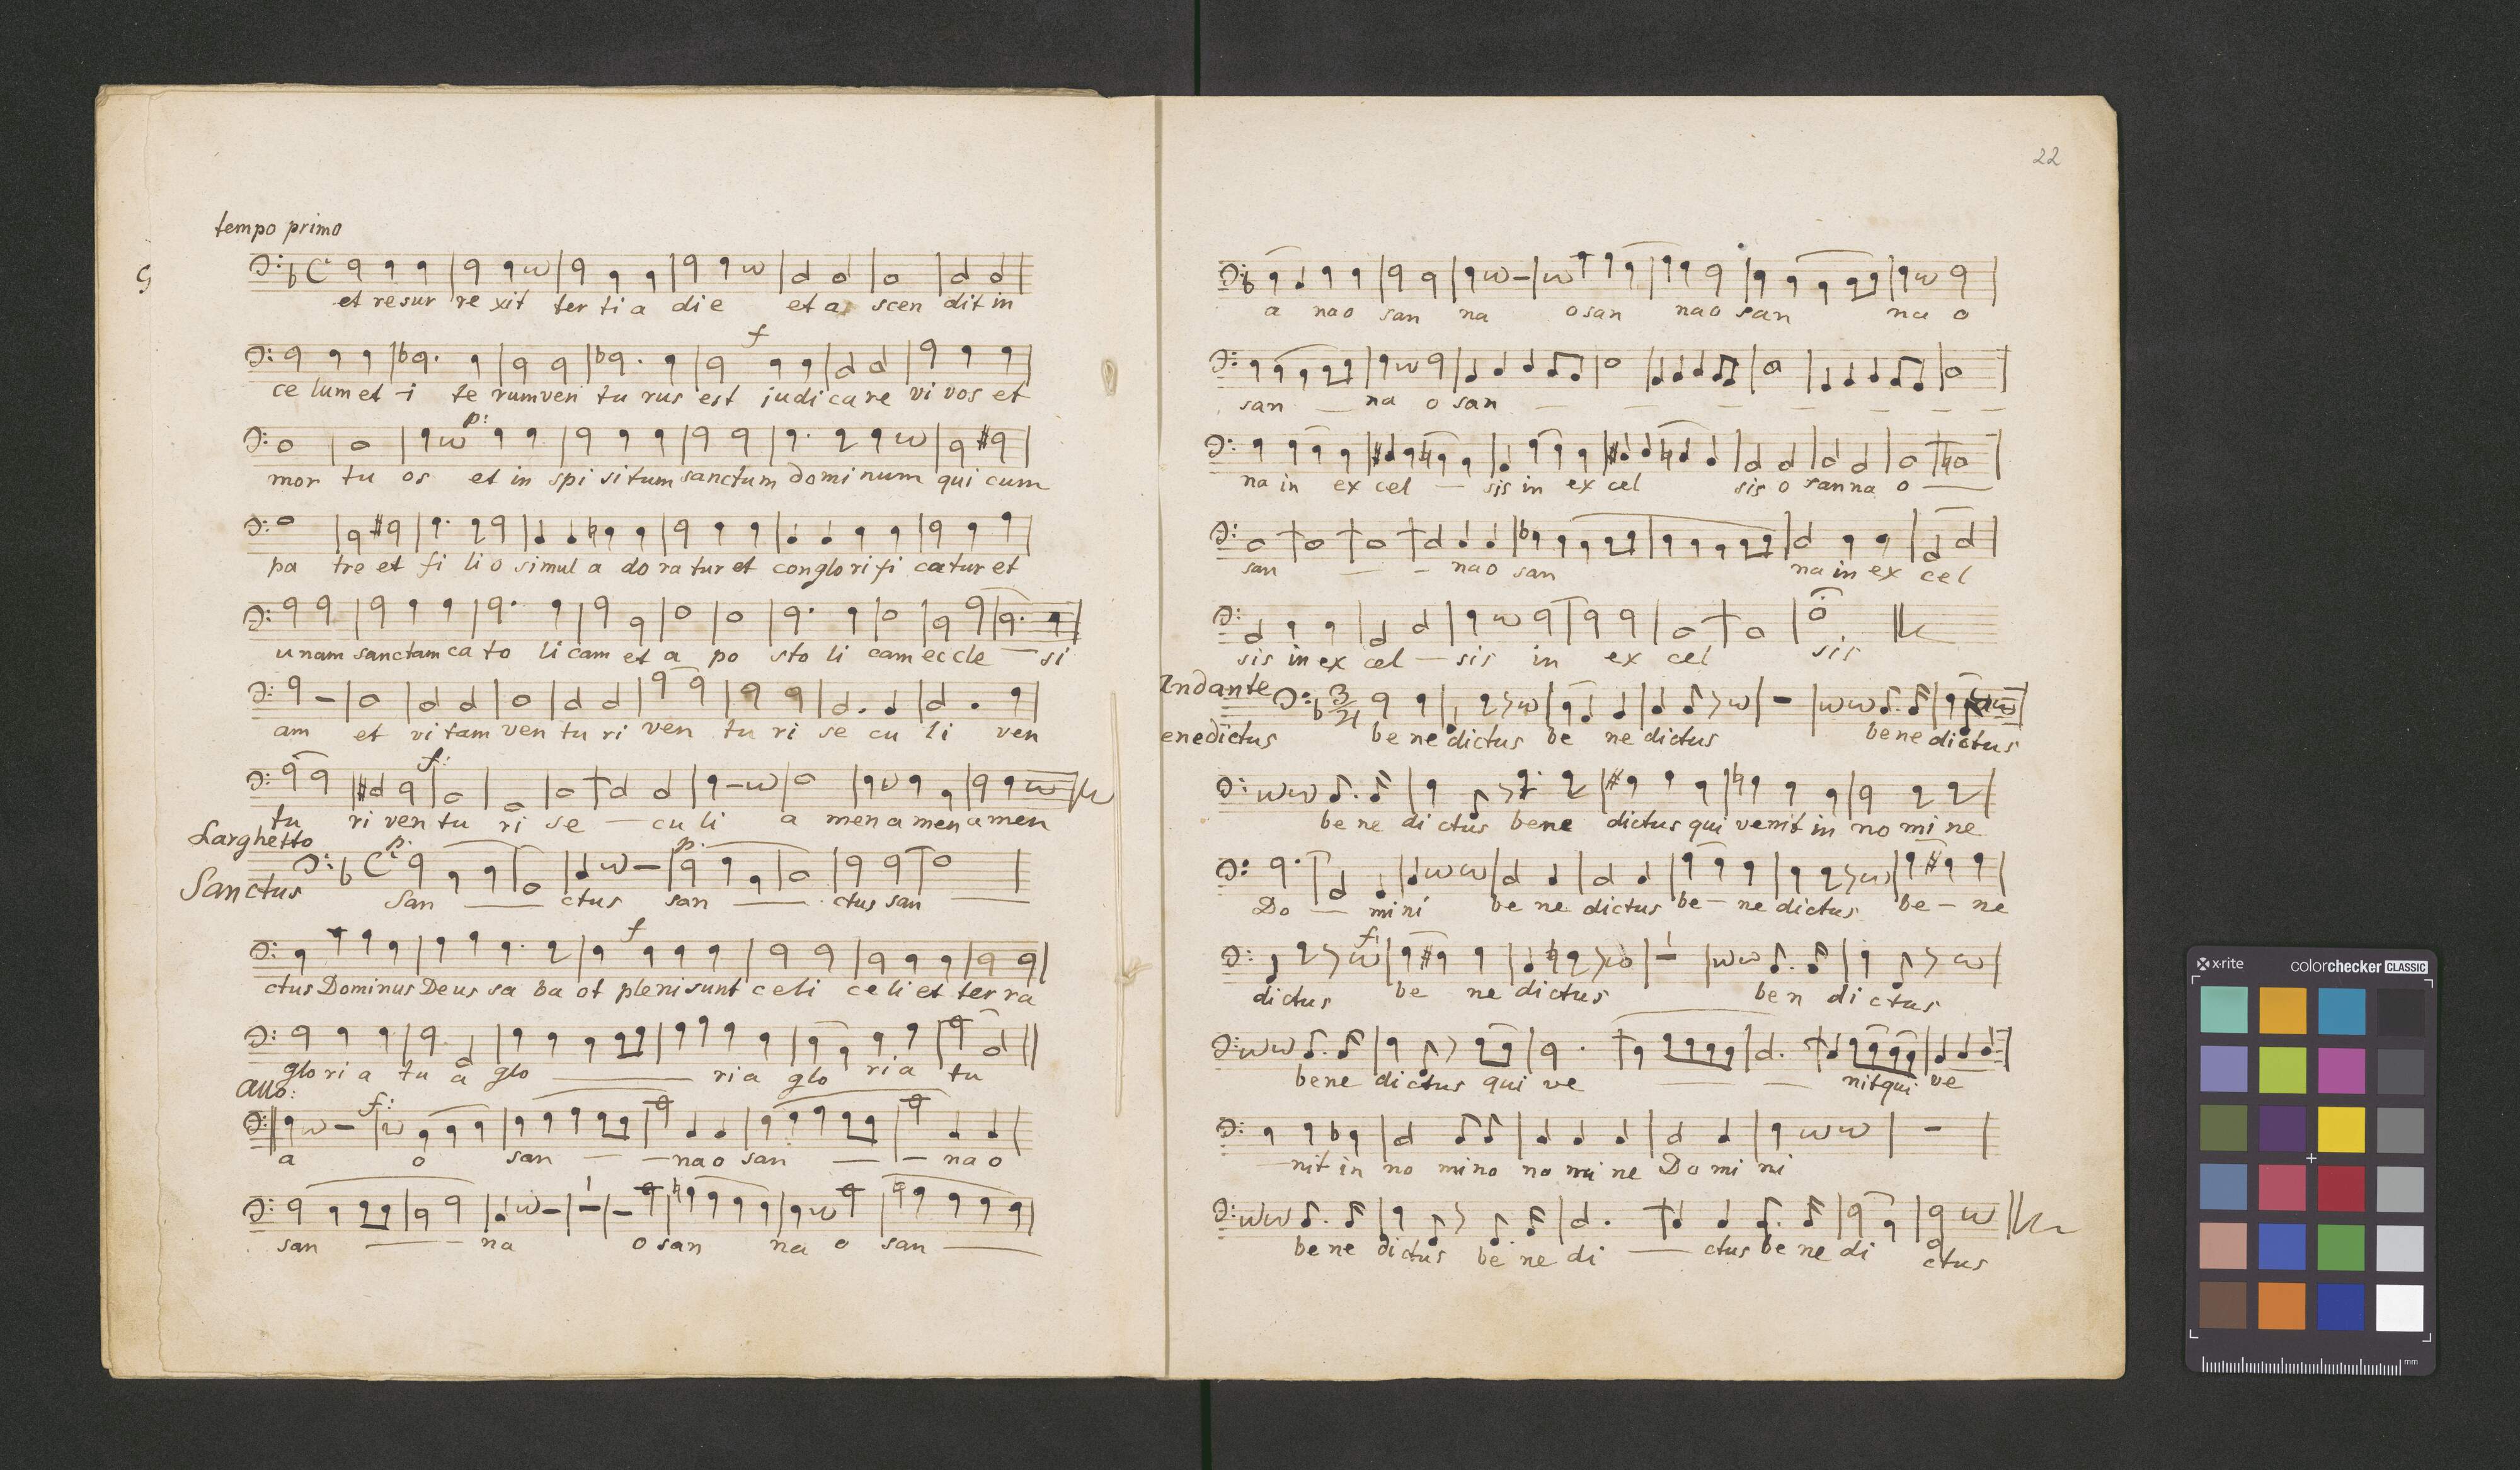 tempo primo
et resur re xit ter ti a di e et a scen dit in
f
ce lum et i te rum ven tu rus est judi ca re vi vos et
p:
mor tu os et in spi situm sanctum do mi num qui cum
pa tre et fi li o simul a do ra tur et conglo ri fi catur et
unam sanctam ca to li cam et a po sto li cam eccle — si
am et vi tam ven tu ri ven tu ri se cu li ven
f:
tu ri ven tu ri se — cu li a men a men amen
Larghetto
p. p.
Sanctus San — ctus san — ctus san —
f
ctus Dominus Deus sa ba ot pleni sunt celi celi et ter ra
glo ri a tu a glo — ria glo ria tu
Allo:
f:
a o san — — — na o san — — na o
san — — na o san na o san —
22
a na o san na o san na o san na o
san — na o san — — — — — — —
na in ex cel — sis in ex cel sis o san na o —
san — — na o san na in ex cel
sis in ex cel — sis in ex cel sis
Andante
3/4
enedictus be ne dictus be ne dictus bene dictus
be ne di ctus bene dictus qui venit in no mi ne
Do — mini be ne dictus be — ne dictus be — ne
f:
dictus be ne dictus ben di ctus
bene dictus qui ve — — nit qui ve
— nit in no mino no mi ne Do mi ni
be ne dictus be ne di — ctus be ne di ctus
x-rite
colorchecker CLASSIC
mm